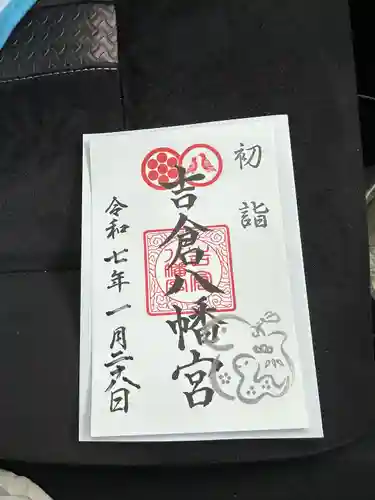 初詣
吉倉八幡宮
令和七年一月二十八日